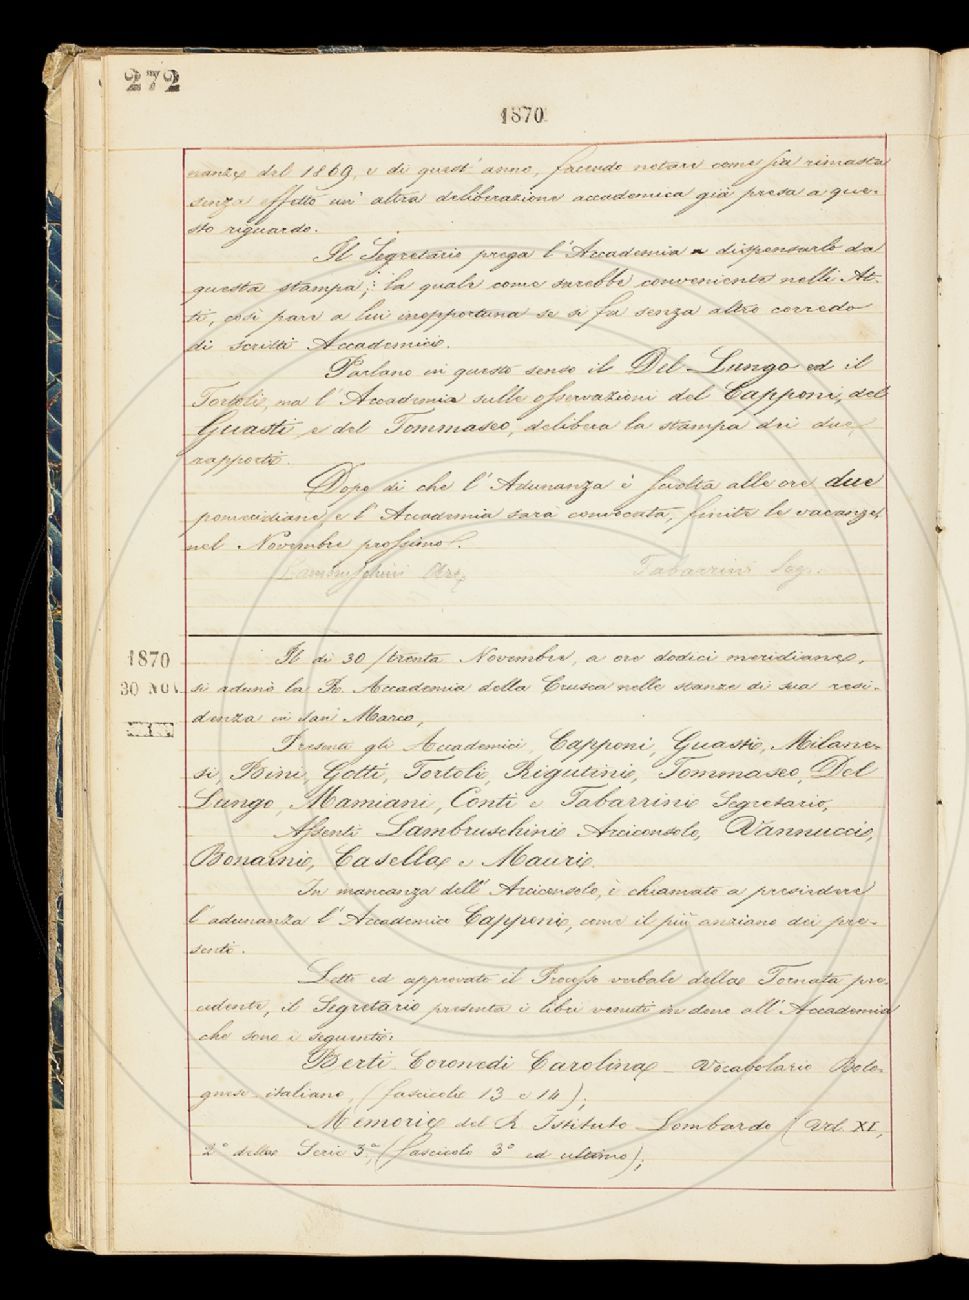 272
1870
nanze del 1869, e di quest' anno, facendo notare come sia rimasta
senza effetto un' altra deliberazione accademica già presa a que-
sto riguardo.
Il Segretario prega l' Accademia a dispensarlo da
questa stampa; la quale come sarebbe conveniente nelli At-
ti, così pare a lui inopportuna se si fa senza altro corredo
di scritti Accademici.
Parlano in questo senso il Del-Lungo ed il
Tortoli, ma l' Accademia sulle osservazioni del Capponi, del
Guasti e del Tommaseo, delibera la stampa dei due
rapporti.
Dopo di che l' Adunanza è sciolta alle ore due
pomeridiane e l' Accademia sarà convocata, finite le vacanze
nel Novembre prossimo.
Lambruschini Arc.
Tabarrini Segr.
1870
30 NOV
Il dì 30 trenta Novembre, a ore dodici meridiane,
si adunò la R. Accademia della Crusca nelle stanze di sua resi-
denza in San Marco,
Presenti gli Accademici, Capponi, Guasti, Milane-
si, Bini, Gotti, Tortoli, Rigutini, Tommaseo, Del
Lungo, Mamiani, Conti e Tabarrini Segretario,
Assenti Lambruschini Arciconsolo, Vannucci,
Bonaini, Casella e Mauri.
In mancanza dell' Arciconsolo, è chiamato a presiedere
l' adunanza l' Accademico Capponi, come il più anziano dei pre-
senti.
Letto ed approvato il Processo verbale della Tornata pre-
cedente, il Segretario presenta i libri venuti in dono all' Accademia
che sono i seguenti:
Berti Coronedi Carolina - Vocabolario Bolo-
gnese italiano, (fascicoli 13 e 14);
Memorie del R. Istituto Lombardo (Vol. XI,
2° della Serie 3ª, (fascicolo 3° ed ultimo);